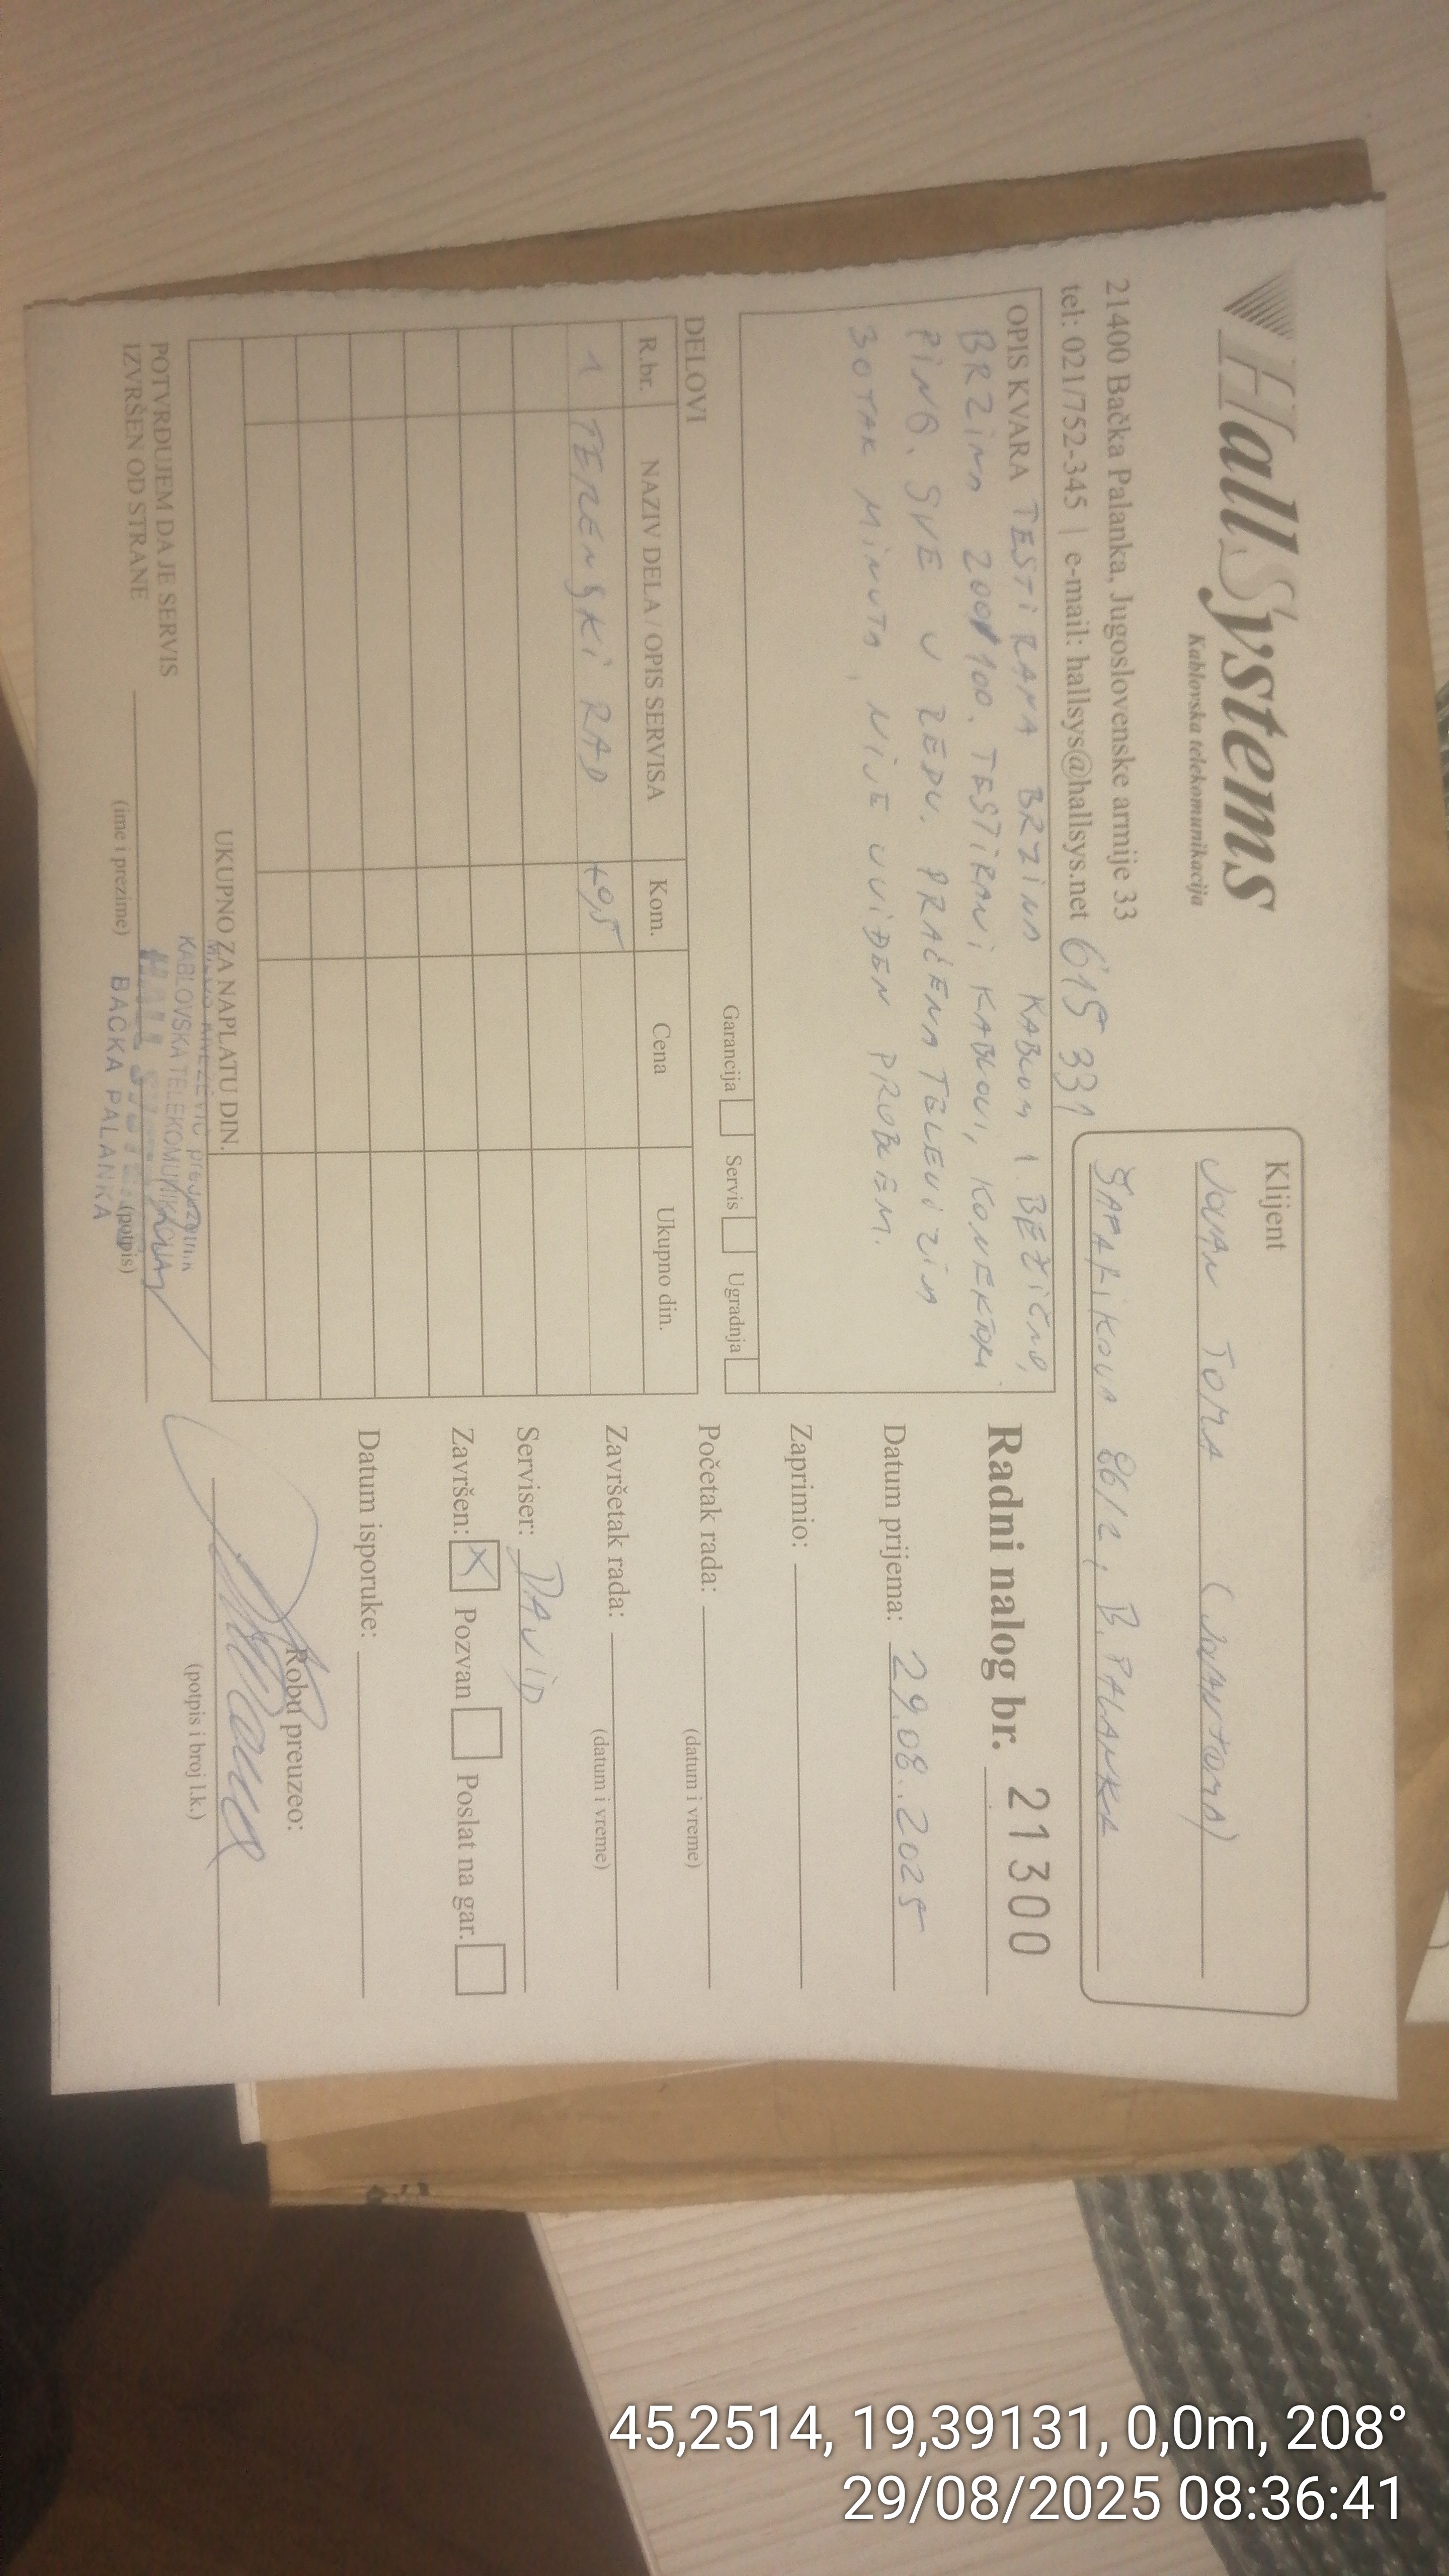 Hall Systems
Kablovska telekomunikacija
21400 Bačka Palanka, Jugoslovenske armije 33
tel: 021/752-345 | e-mail: hallsys@hallsys.net 615 331
Klijent
JOVAN TOMA (JOVANTOMA)
ŠAFARIKOVA 86/2, B. PALANKA
OPIS KVARA TESTIRANA BRZINA KABLOM I BEŽIČNO,
BRZINA 200/100. TESTIRANI KABLOVI, KONEKTORI
PING. SVE U REDU. PRAĆENA TELEVIZIJA
30TAK MINUTA, NIJE UVIĐEN PROBLEM.
Garancija Servis Ugradnja
DELOVI
R.br. NAZIV DELA / OPIS SERVISA Kom. Cena Ukupno din.
1 TERENSKI RAD +0,5
UKUPNO ZA NAPLATU DIN.
POTVRĐUJEM DA JE SERVIS
IZVRŠEN OD STRANE
(ime i prezime) (potpis)
KABLOVSKA TELEKOMUNIKACIJA
BAČKA PALANKA
Radni nalog br. 21300
Datum prijema: 29.08.2025
Zaprimio:
Početak rada:
(datum i vreme)
Završetak rada:
(datum i vreme)
Serviser: DAVID
Završen: X Pozvan Poslat na gar.
Datum isporuke:
Robu preuzeo:
(potpis i broj l.k.)
45,2514, 19,39131, 0,0m, 208°
29/08/2025 08:36:41